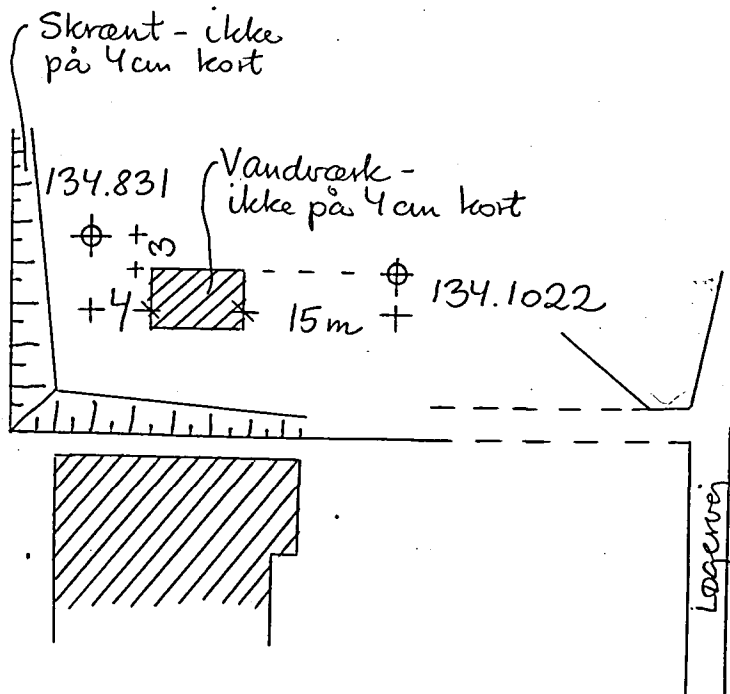 Skrænt - ikke
på 4cm kort
134.831
Vandværk -
ikke på 4cm kort
3
4
15m
134.1022